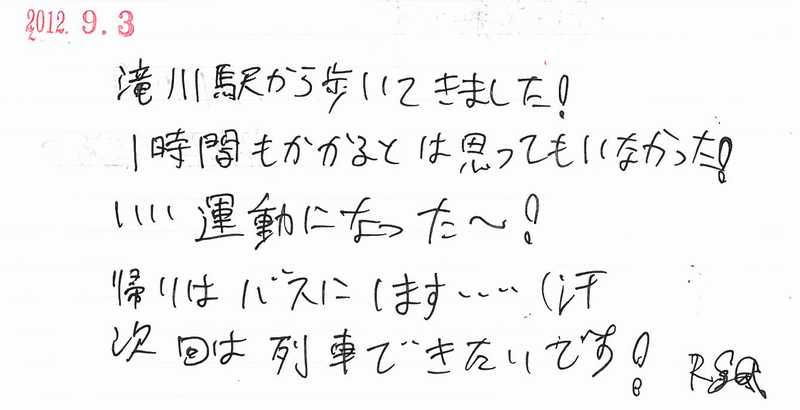 2012. 9. 3
滝川駅から歩いてきました!
1時間もかかるとは思ってもいなかった!
いい運動になった〜!
帰りはバスにします‥‥(汗
次回は列車できたいです!